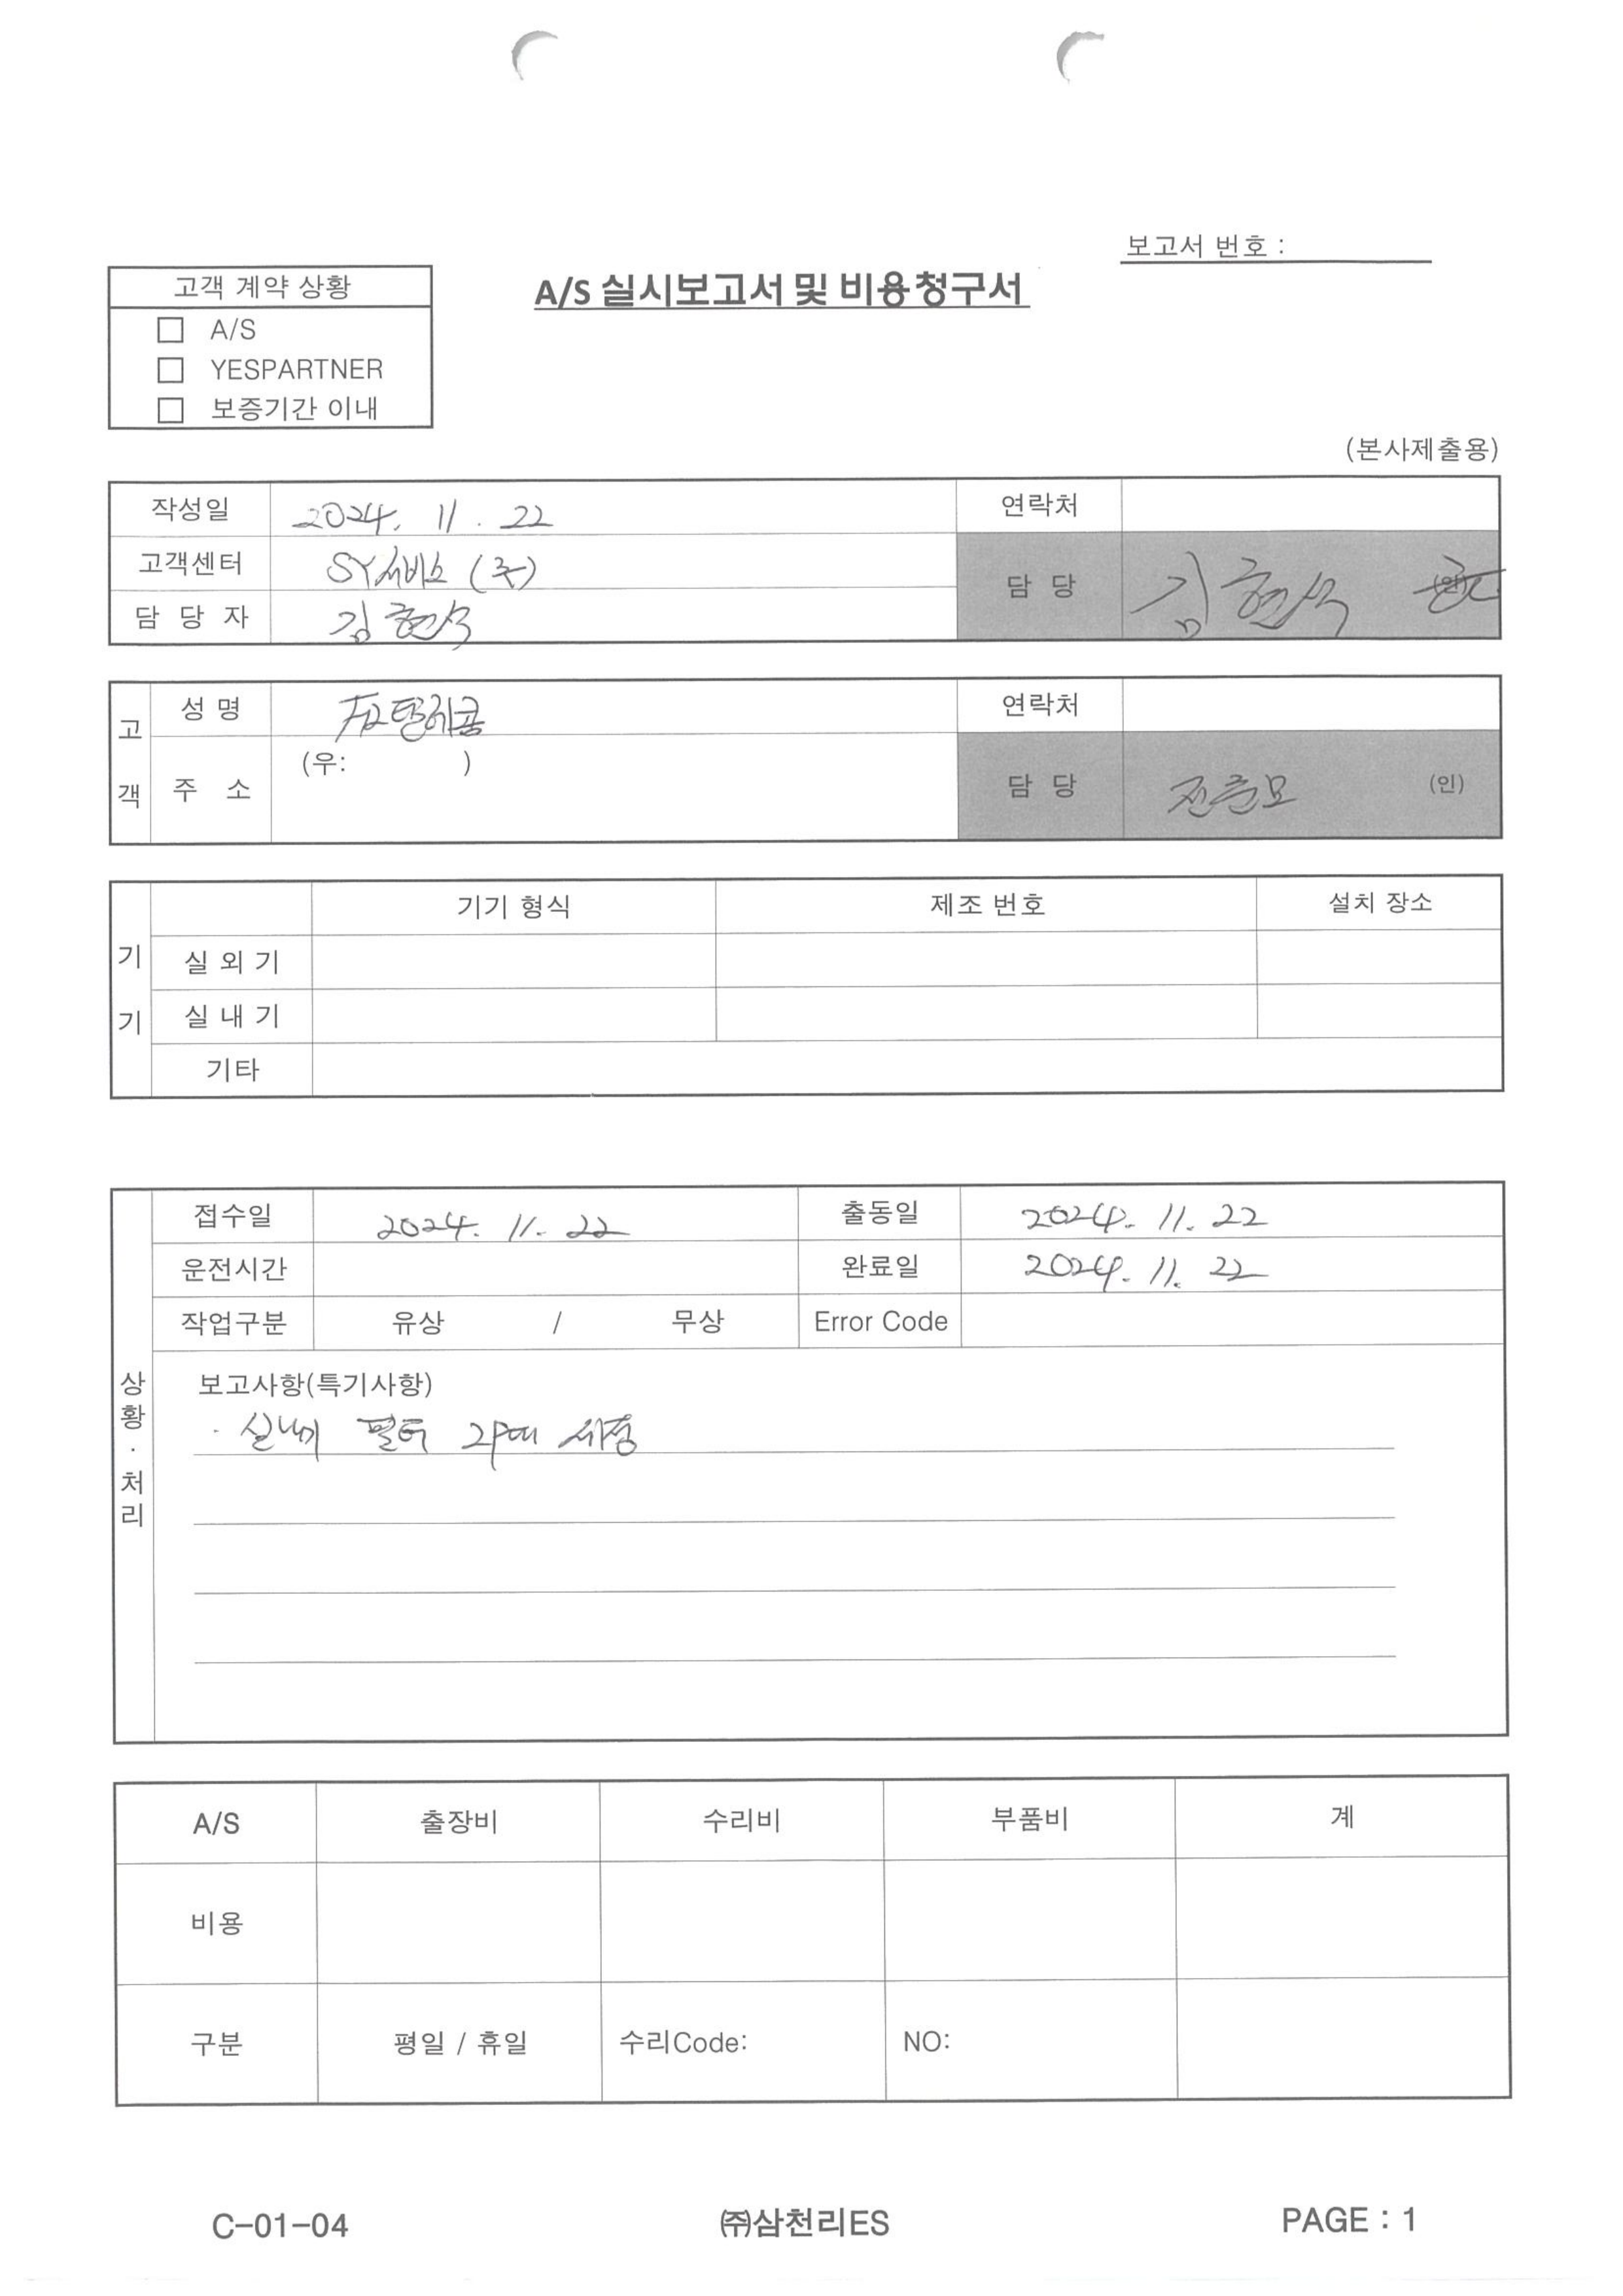 보고서 번호 :
고객 계약 상황
A/S 실시보고서 및 비용청구서
☐ A/S
☐ YESPARTNER
☐ 보증기간 이내
(본사제출용)
작성일 2024. 11. 22 연락처
고객센터 SY서비스 (주)
담 당 김현숙 (인)
담 당 자 김현숙
고객
성 명 텔레콤 연락처
주 소 (우: )
담 당 (인)
기기
기기 형식 제조 번호 설치 장소
실 외 기
실 내 기
기타
상황·처리
접수일 2024. 11. 22 출동일 2024. 11. 22
운전시간 완료일 2024. 11. 22
작업구분 유상 / 무상 Error Code
보고사항(특기사항)
· 실내기 필터 21대 세정
A/S 출장비 수리비 부품비 계
비용
구분 평일 / 휴일 수리Code: NO:
C-01-04 ㈜삼천리ES PAGE : 1